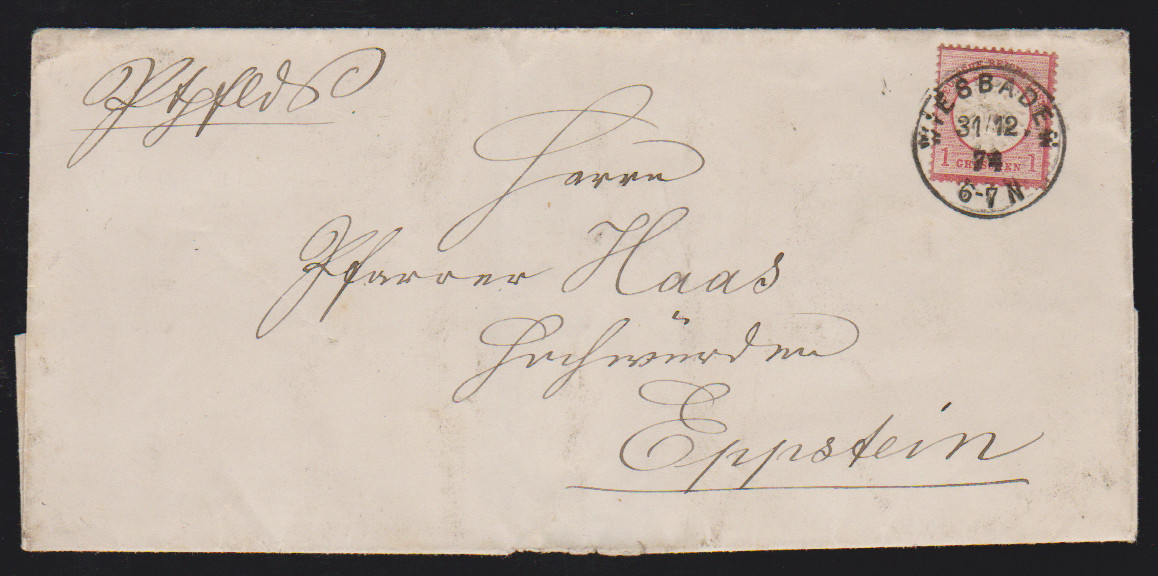 WIESBADEN
31/12
74
6-7 N
1 GROSCHEN 1
Herrn
Pfarrer Haas
Hochwürden
Eppstein